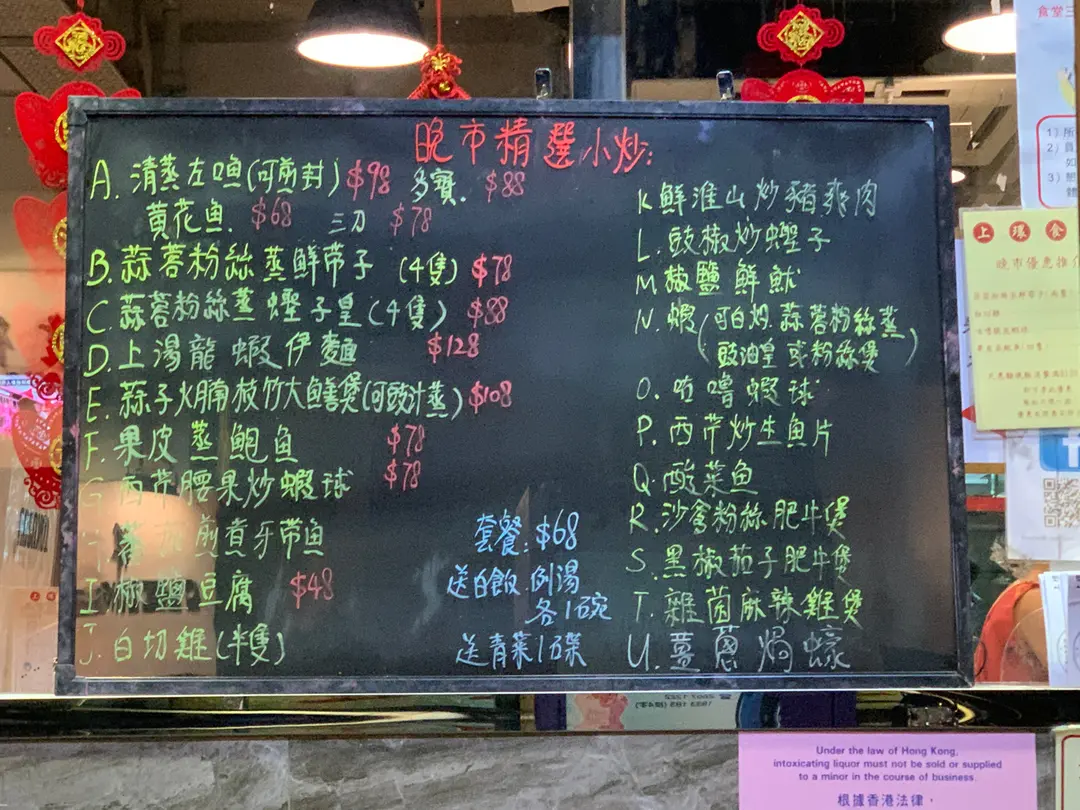 晚市精選小炒：
A. 清蒸左口魚(可煎封) $98 多寶. $88
黄花魚. $68 三刀 $78
B. 蒜蓉粉絲蒸鮮带子 (4隻) $78
C. 蒜蓉粉絲蒸蟶子皇(4隻) $88
D. 上湯龍蝦伊麵 $128
E. 蒜子火腩枝竹大鱔煲(可豉汁蒸) $108
F. 果皮蒸鮑魚 $78
G 西芹腰果炒蝦球 $78
煎煮牙带魚
I. 椒鹽豆腐 $48
J. 白切雞(半隻)
套餐：$68
送白飯.例湯
各1碗
送青菜1碟
K 鮮淮山炒豬爽肉
L. 豉椒炒蟶子
M 椒鹽鮮魷
N. 蝦(可白灼.蒜蓉粉絲蒸
豉油皇或粉絲煲)
O. 咕嚕蝦球
P. 西芹炒生魚片
Q. 酸菜魚
R. 沙爹粉絲肥牛煲
S. 黑椒茄子肥牛煲
T. 雜菌麻辣雞煲
U. 薑蔥焗蠔
食堂三
1)
2)
3)
上環食
晚市優惠推
Under the law of Hong Kong,
intoxicating liquor must not be sold or supplied
to a minor in the course of business.
根據香港法律，